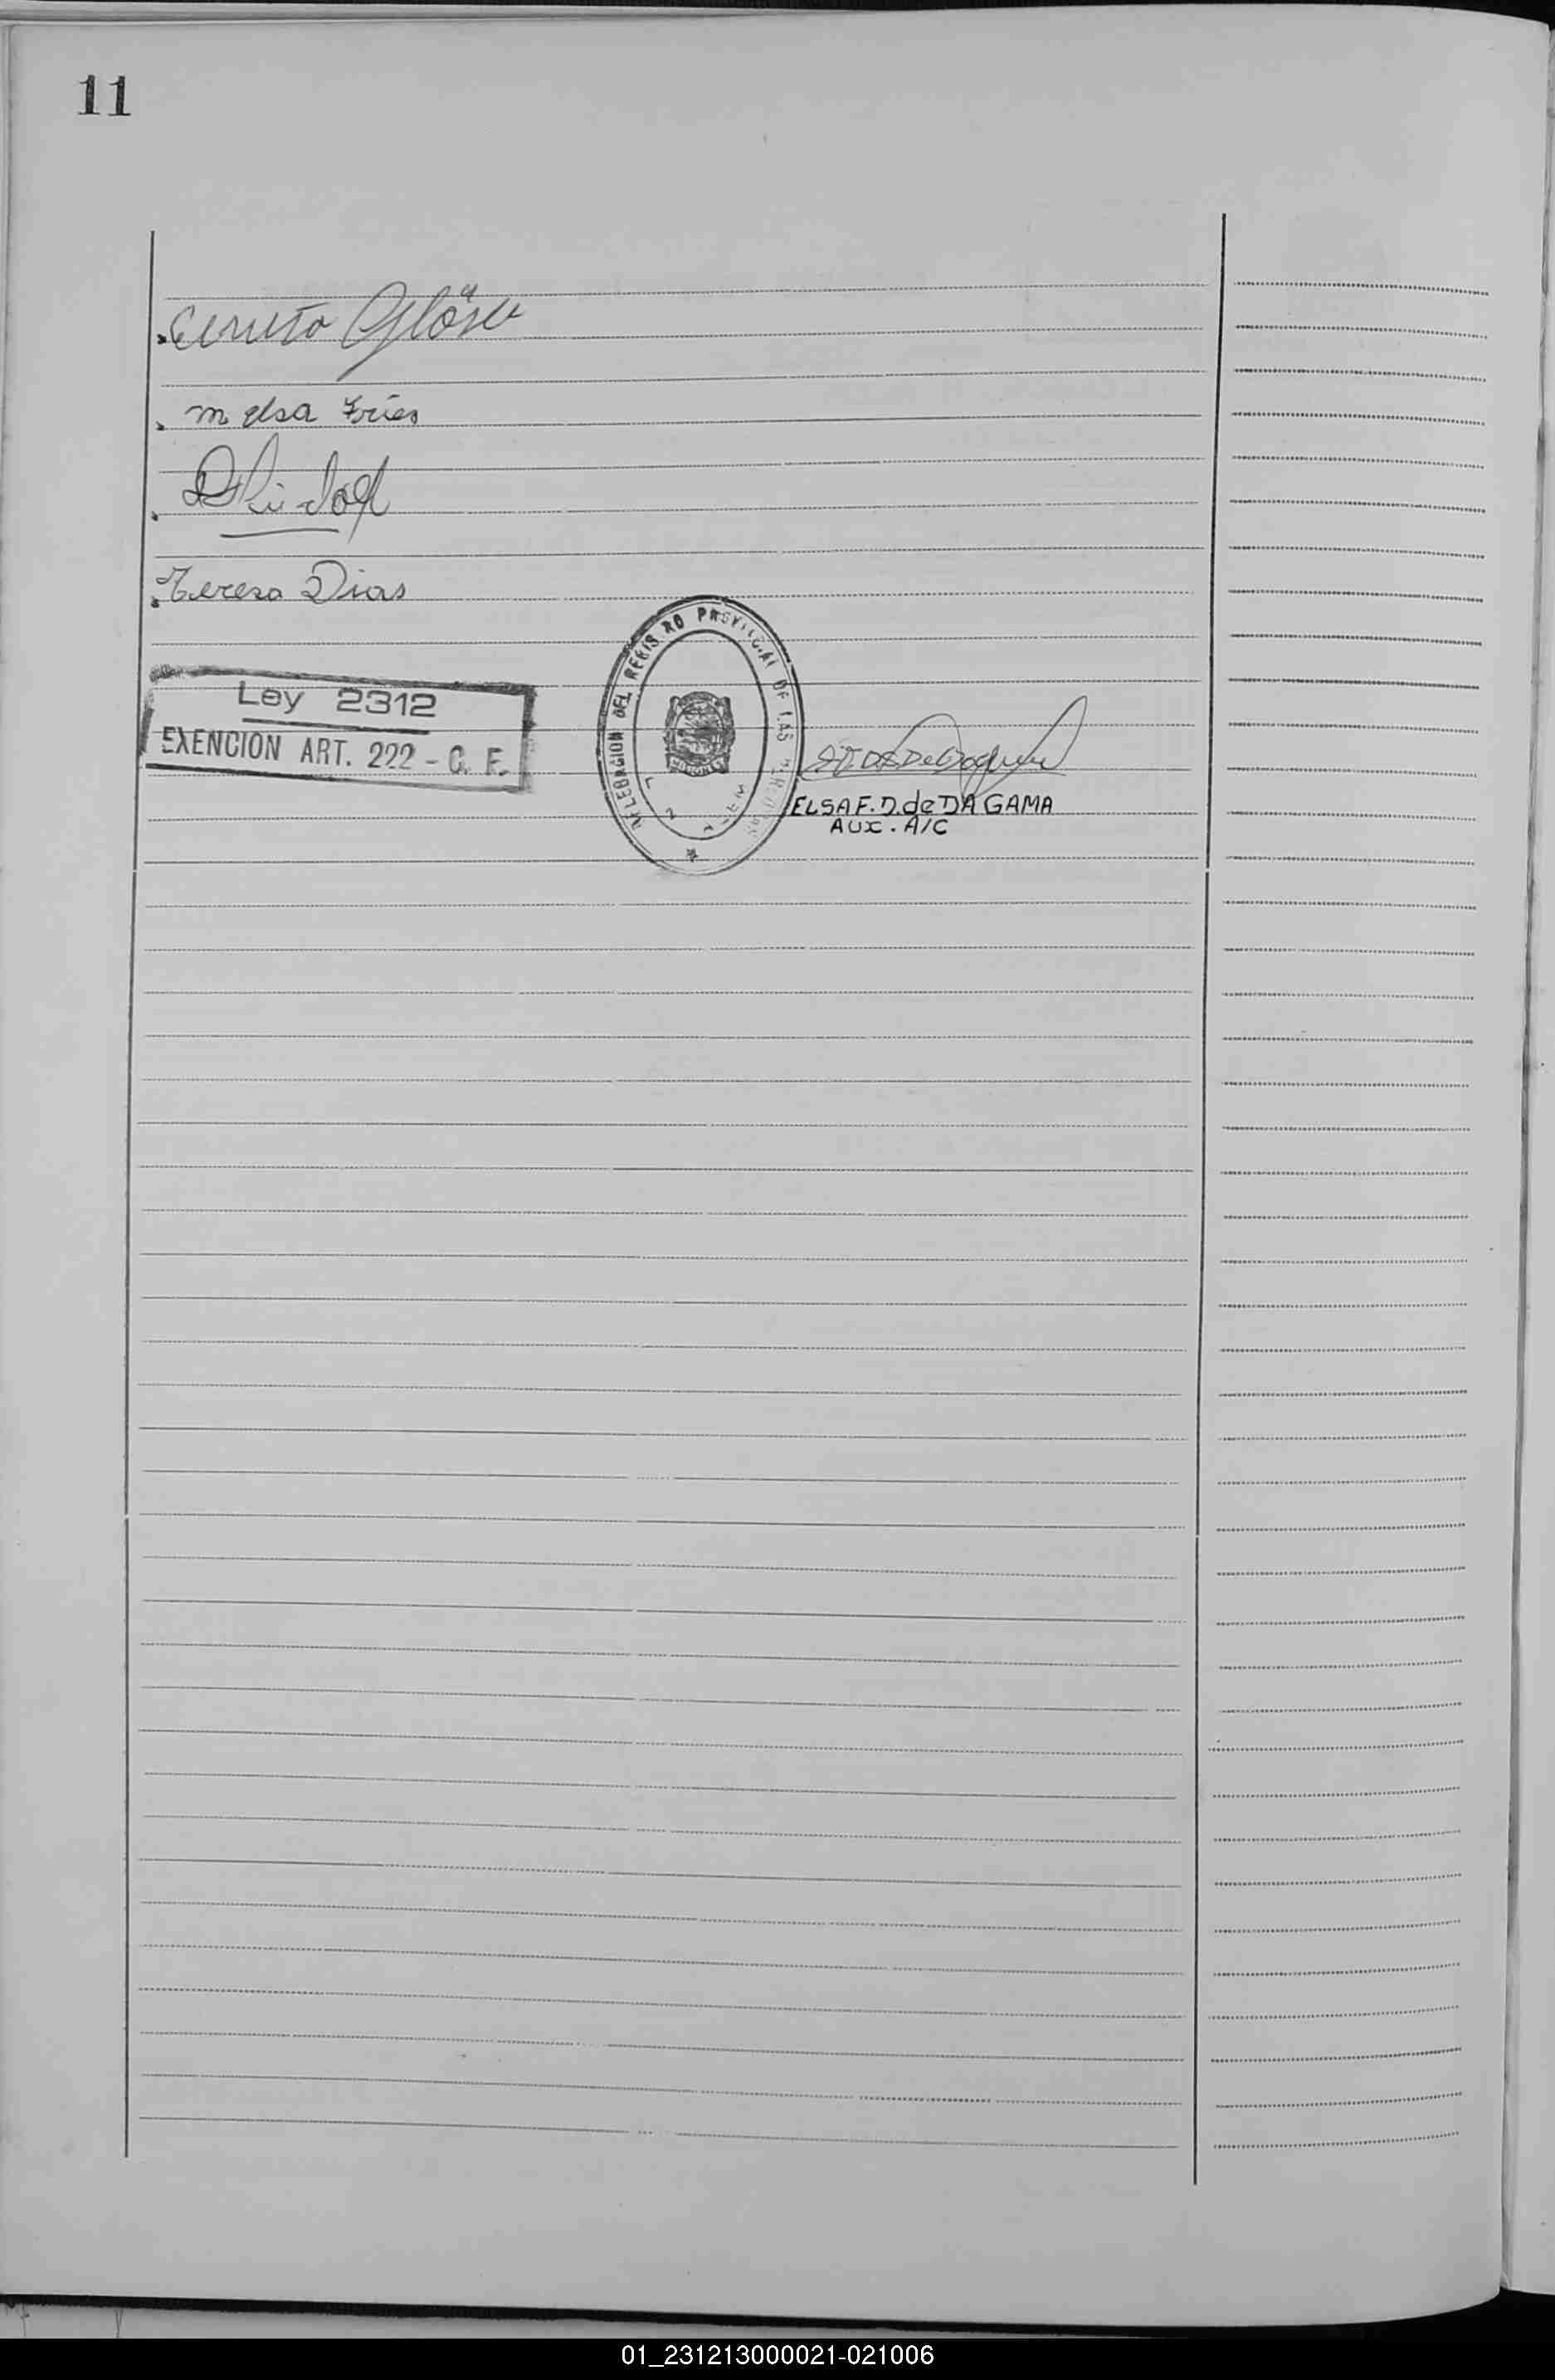 11
Ernesto Gläser
m elsa Fries
Teresa Dias
Ley 2312
EXENCION ART. 222 - C. F.
DELEGACION DEL REGISTRO PROVINCIAL DE LAS PERSONAS
MISIONES
ELSA F. D. de DA GAMA
AUX. A/C
01_231213000021-021006